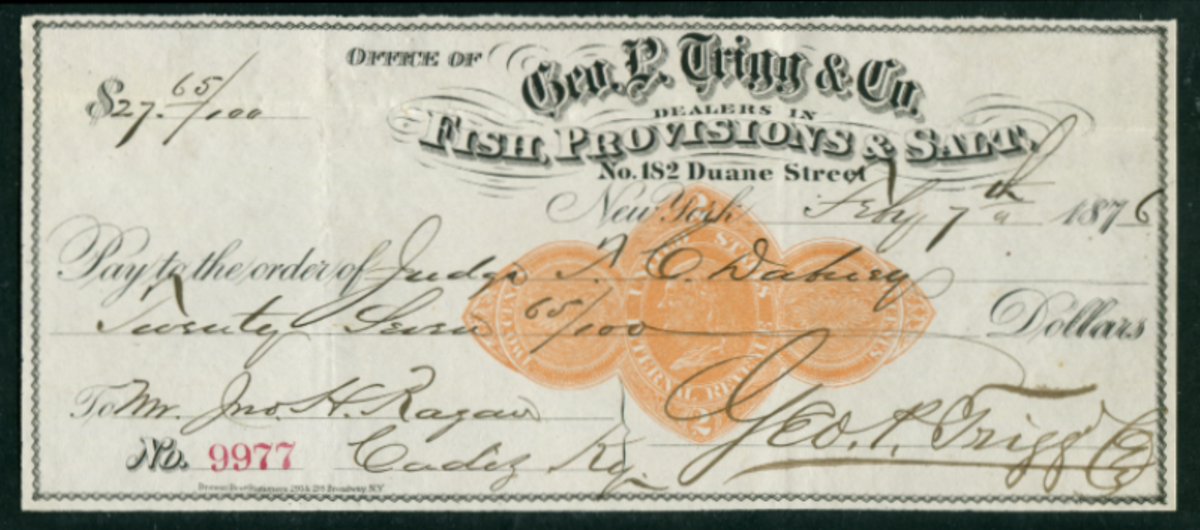 $27. 65/100
OFFICE OF
Geo. P. Trigg & Co.
DEALERS IN
FISH, PROVISIONS & SALT,
No. 182 Duane Street
New York Feby 7th 1876
Pay to the order of Judge T. C. Dabney
Twenty Seven 65/100 Dollars
UNITED STATES
INTERNAL REVENUE
TWO CENTS
2
To Mr. Jno. H. Ragan
Geo. P. Trigg & Co
No. 9977 Cadiz Ky.
Broadway, N.Y.